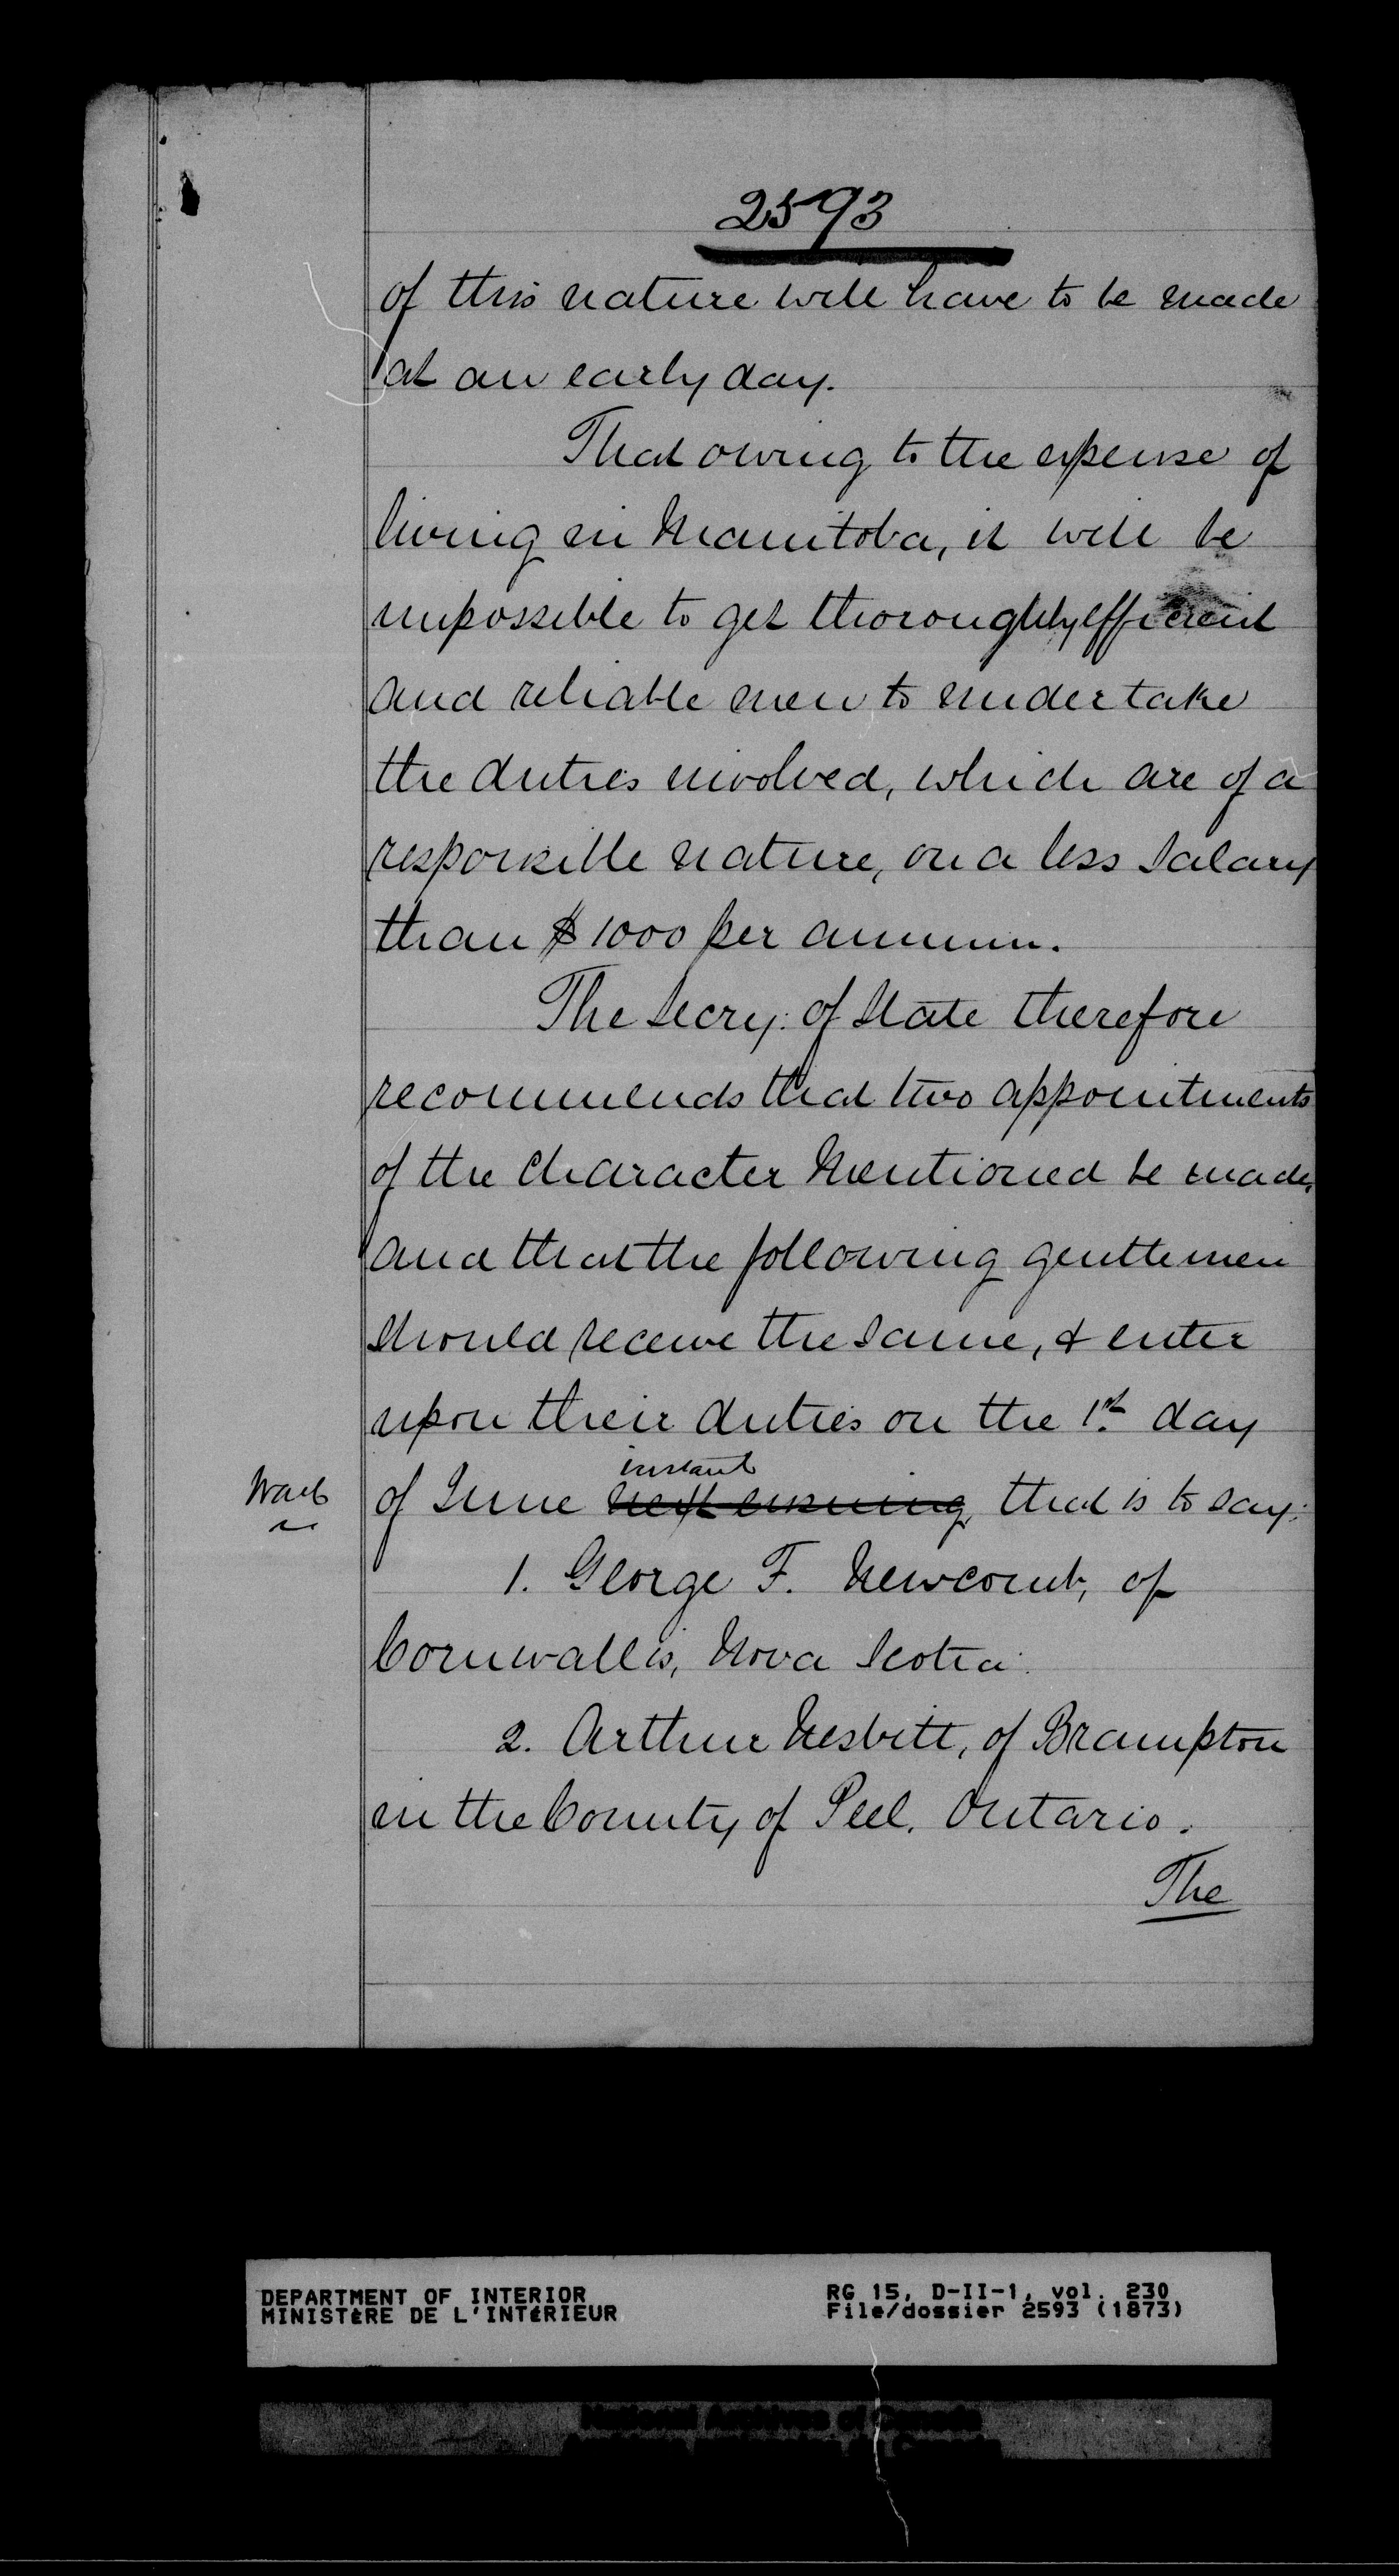 2593
of this nature will have to be made
at an early day.
That owing to the expense of
living in Manitoba, it will be
impossible to get thoroughly efficient
and reliable men to undertake
the duties involved, which are of a
responsible nature, on a less salary
than $1000 per annum.
The Secry: of State therefore
recommends that two appointments
of the character mentioned be made,
and that the following gentlemen
should receive the same, & enter
upon their duties on the 1st. day
instant
of June next ensuing, that is to say:
1. George F. Newcomb, of
Cornwallis, Nova Scotia.
2. Arthur Nesbitt, of Brampton
in the County of Peel, Ontario.
The
DEPARTMENT OF INTERIOR
MINISTÈRE DE L'INTÉRIEUR
RG 15, D-II-1, vol. 230
File/dossier 2593 (1873)